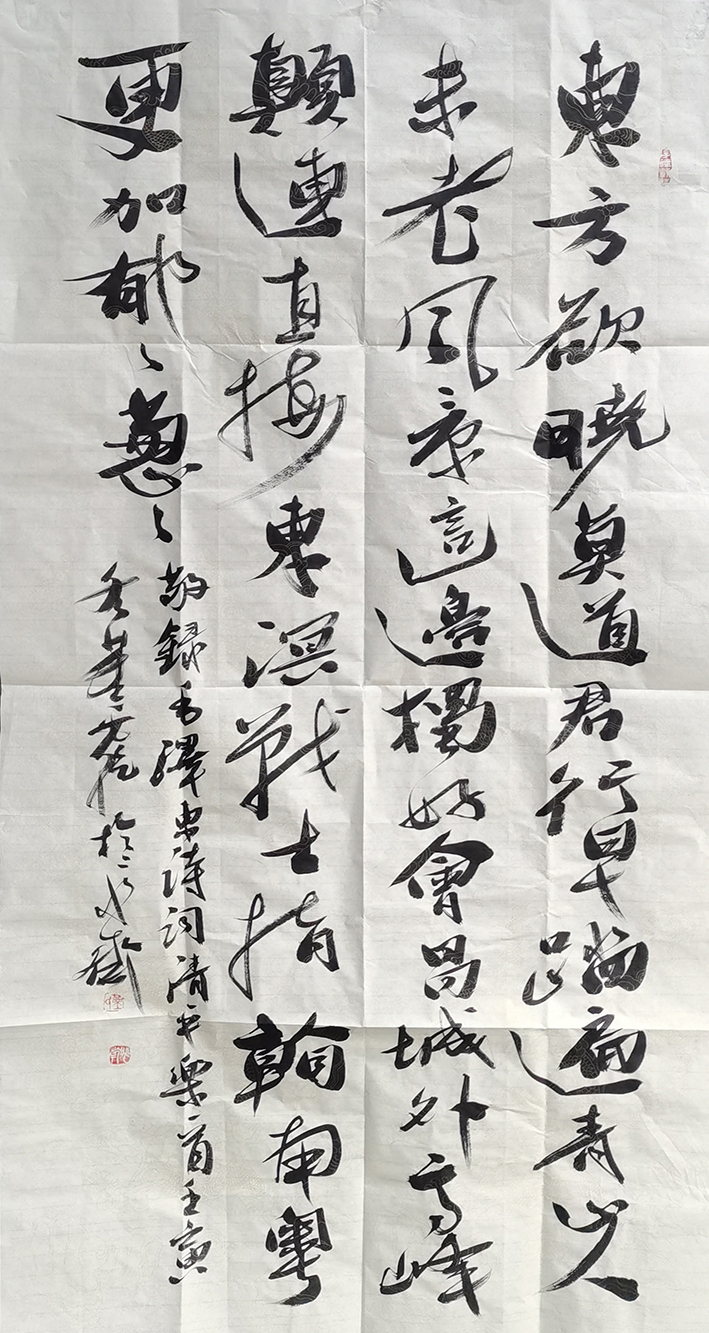 東方欲曉莫道君行早踏遍青山人
未老風景這邊獨好會昌城外高峰
顛連直接東溟戰士指看南粵
更加郁〻蔥〻
敬錄毛澤東詩詞清平樂一首壬寅
冬董於齋